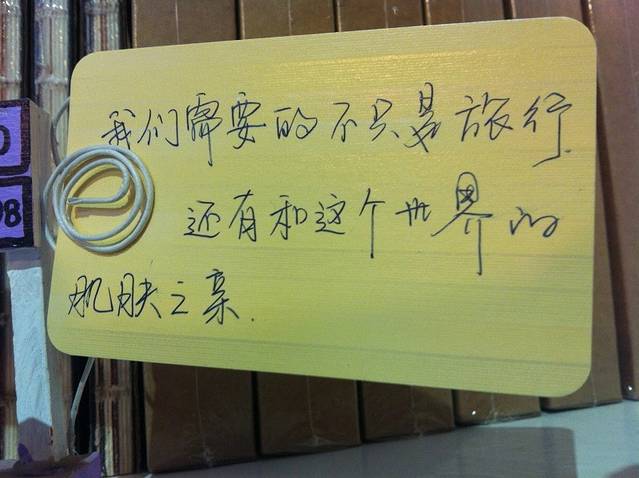 我们需要的不只是旅行.
还有和这个世界的
肌肤之亲.
98